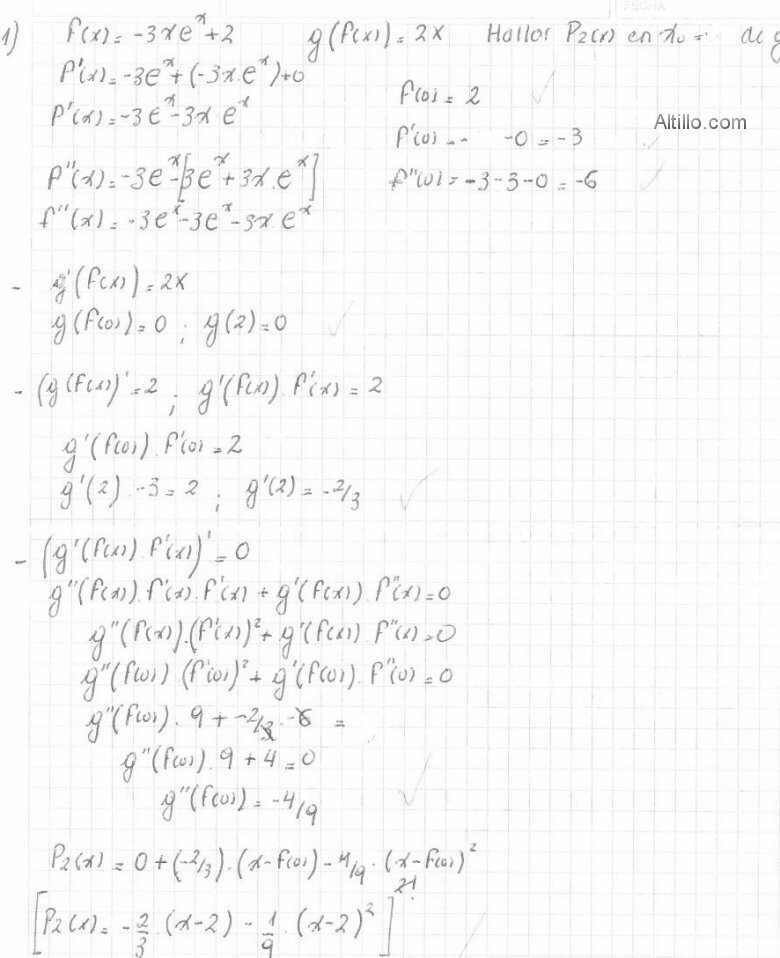 FECHA
1) f(x) = -3xe^x + 2 g(f(x)) = 2x Hallar P2(x) en x0 = de g
f'(x) = -3e^x + (-3x.e^x) + 0
f'(x) = -3e^x - 3x e^x
f''(x) = -3e^x - [3e^x + 3x.e^x]
f''(x) = -3e^x - 3e^x - 3x e^x
f(0) = 2 ✓
Altillo.com
f'(0) = - -0 = -3
f''(0) = -3-3-0 = -6
- g'(f(x)) = 2x
g(f(0)) = 0 ; g(2) = 0 ✓
- (g(f(x))' = 2 ; g'(f(x)) . f'(x) = 2
g'(f(0)) . f'(0) = 2
g'(2) . -3 = 2 ; g'(2) = -2/3 ✓
- (g'(f(x)) f'(x))' = 0
g''(f(x)) . f'(x) . f'(x) + g'(f(x)) . f''(x) = 0
g''(f(x)) . (f'(x))² + g'(f(x)) f''(x) = 0
g''(f(0)) (f'(0))² + g'(f(0)) . f''(0) = 0
g''(f(0)) . 9 + -2/3 . -6 =
g''(f(0)) . 9 + 4 = 0
g''(f(0)) = -4/9 ✓
P2(x) = 0 + (-2/3) . (x - f(0)) - 4/9 . (x - f(0))²
2!
[P2(x) = -2/3 . (x-2) - 1/9 . (x-2)²]